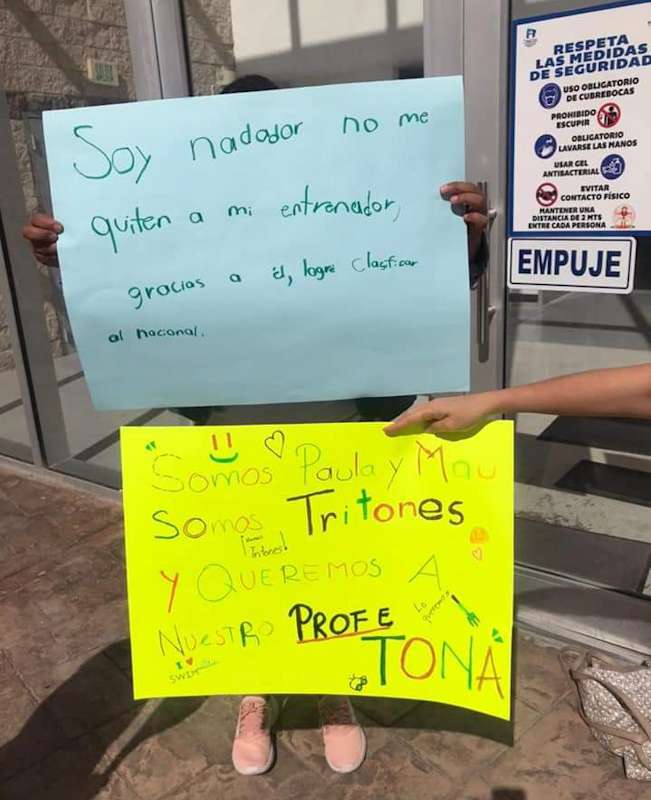 Soy nadador no me
quiten a mi entrenador,
gracias a él, logré Clasificar
al nacional.
"Somos Paula y Mau
Somos Tritones
¡Vamos
Tritones!
Y QUEREMOS A
NUESTRO PROFE
LO
queremos
TONA"
I ♥
SWIM
RESPETA
LAS MEDIDAS
DE SEGURIDAD
USO OBLIGATORIO
DE CUBREBOCAS
PROHIBIDO
ESCUPIR
OBLIGATORIO
LAVARSE LAS MANOS
USAR GEL
ANTIBACTERIAL
EVITAR
CONTACTO FÍSICO
MANTENER UNA
DISTANCIA DE 2 MTS
ENTRE CADA PERSONA
EMPUJE